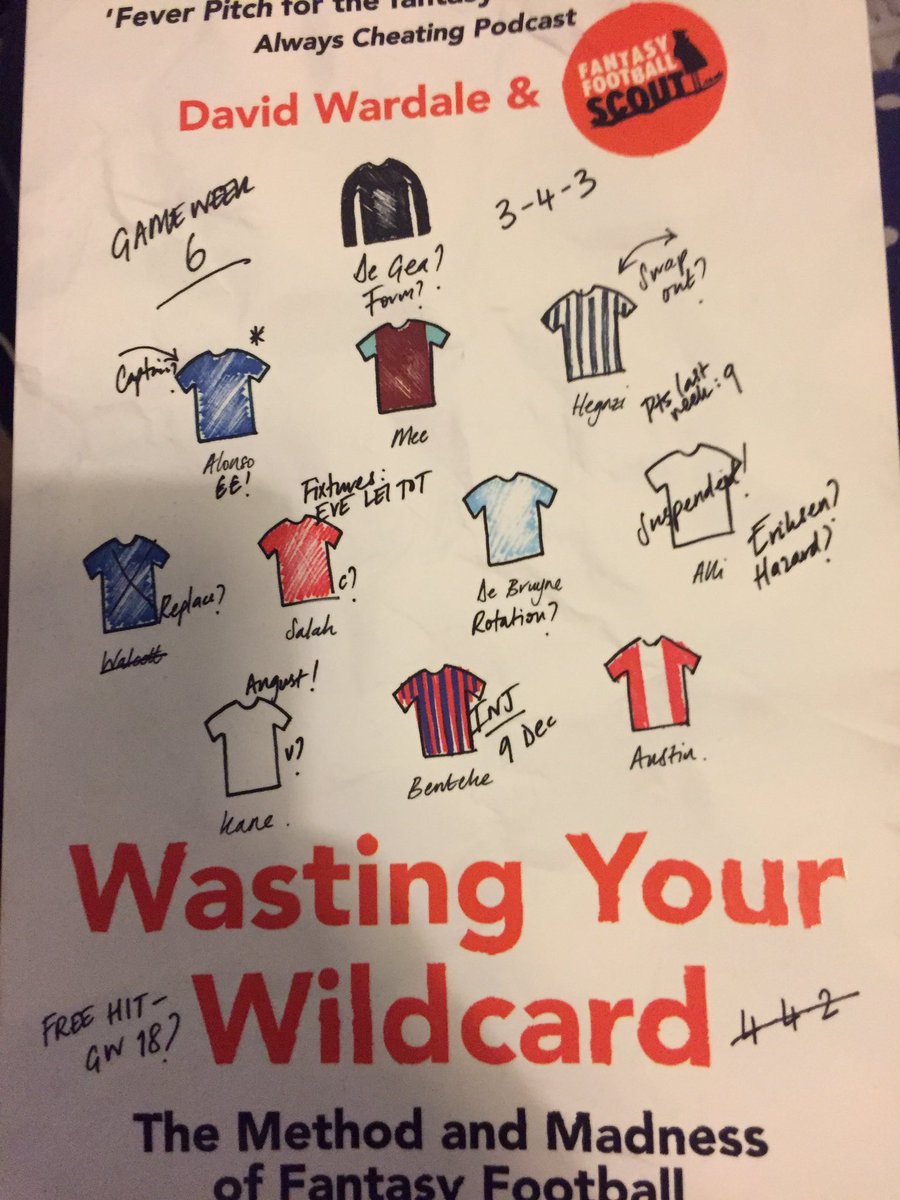 'Fever Pitch for the fantasy
Always Cheating Podcast
David Wardale &
FANTASY
FOOTBALL
SCOUT
GAMEWEEK
6
3-4-3
De Gea?
Form?
Swap
out?
Captain?
*
Alonso
EE!
Mee
Hegazi
Pts last
week: 9
Fixtures:
EVE LEI TOT
Suspended!
Alli
Eriksen?
Hazard?
Replace?
Walcott
C?
Salah
De Bruyne
Rotation?
August!
V?
Kane.
INJ
9 Dec
Benteke
Austin.
Wasting Your
Wildcard
FREE HIT-
GW 18?
4 4 2
The Method and Madness
of Fantasy Football